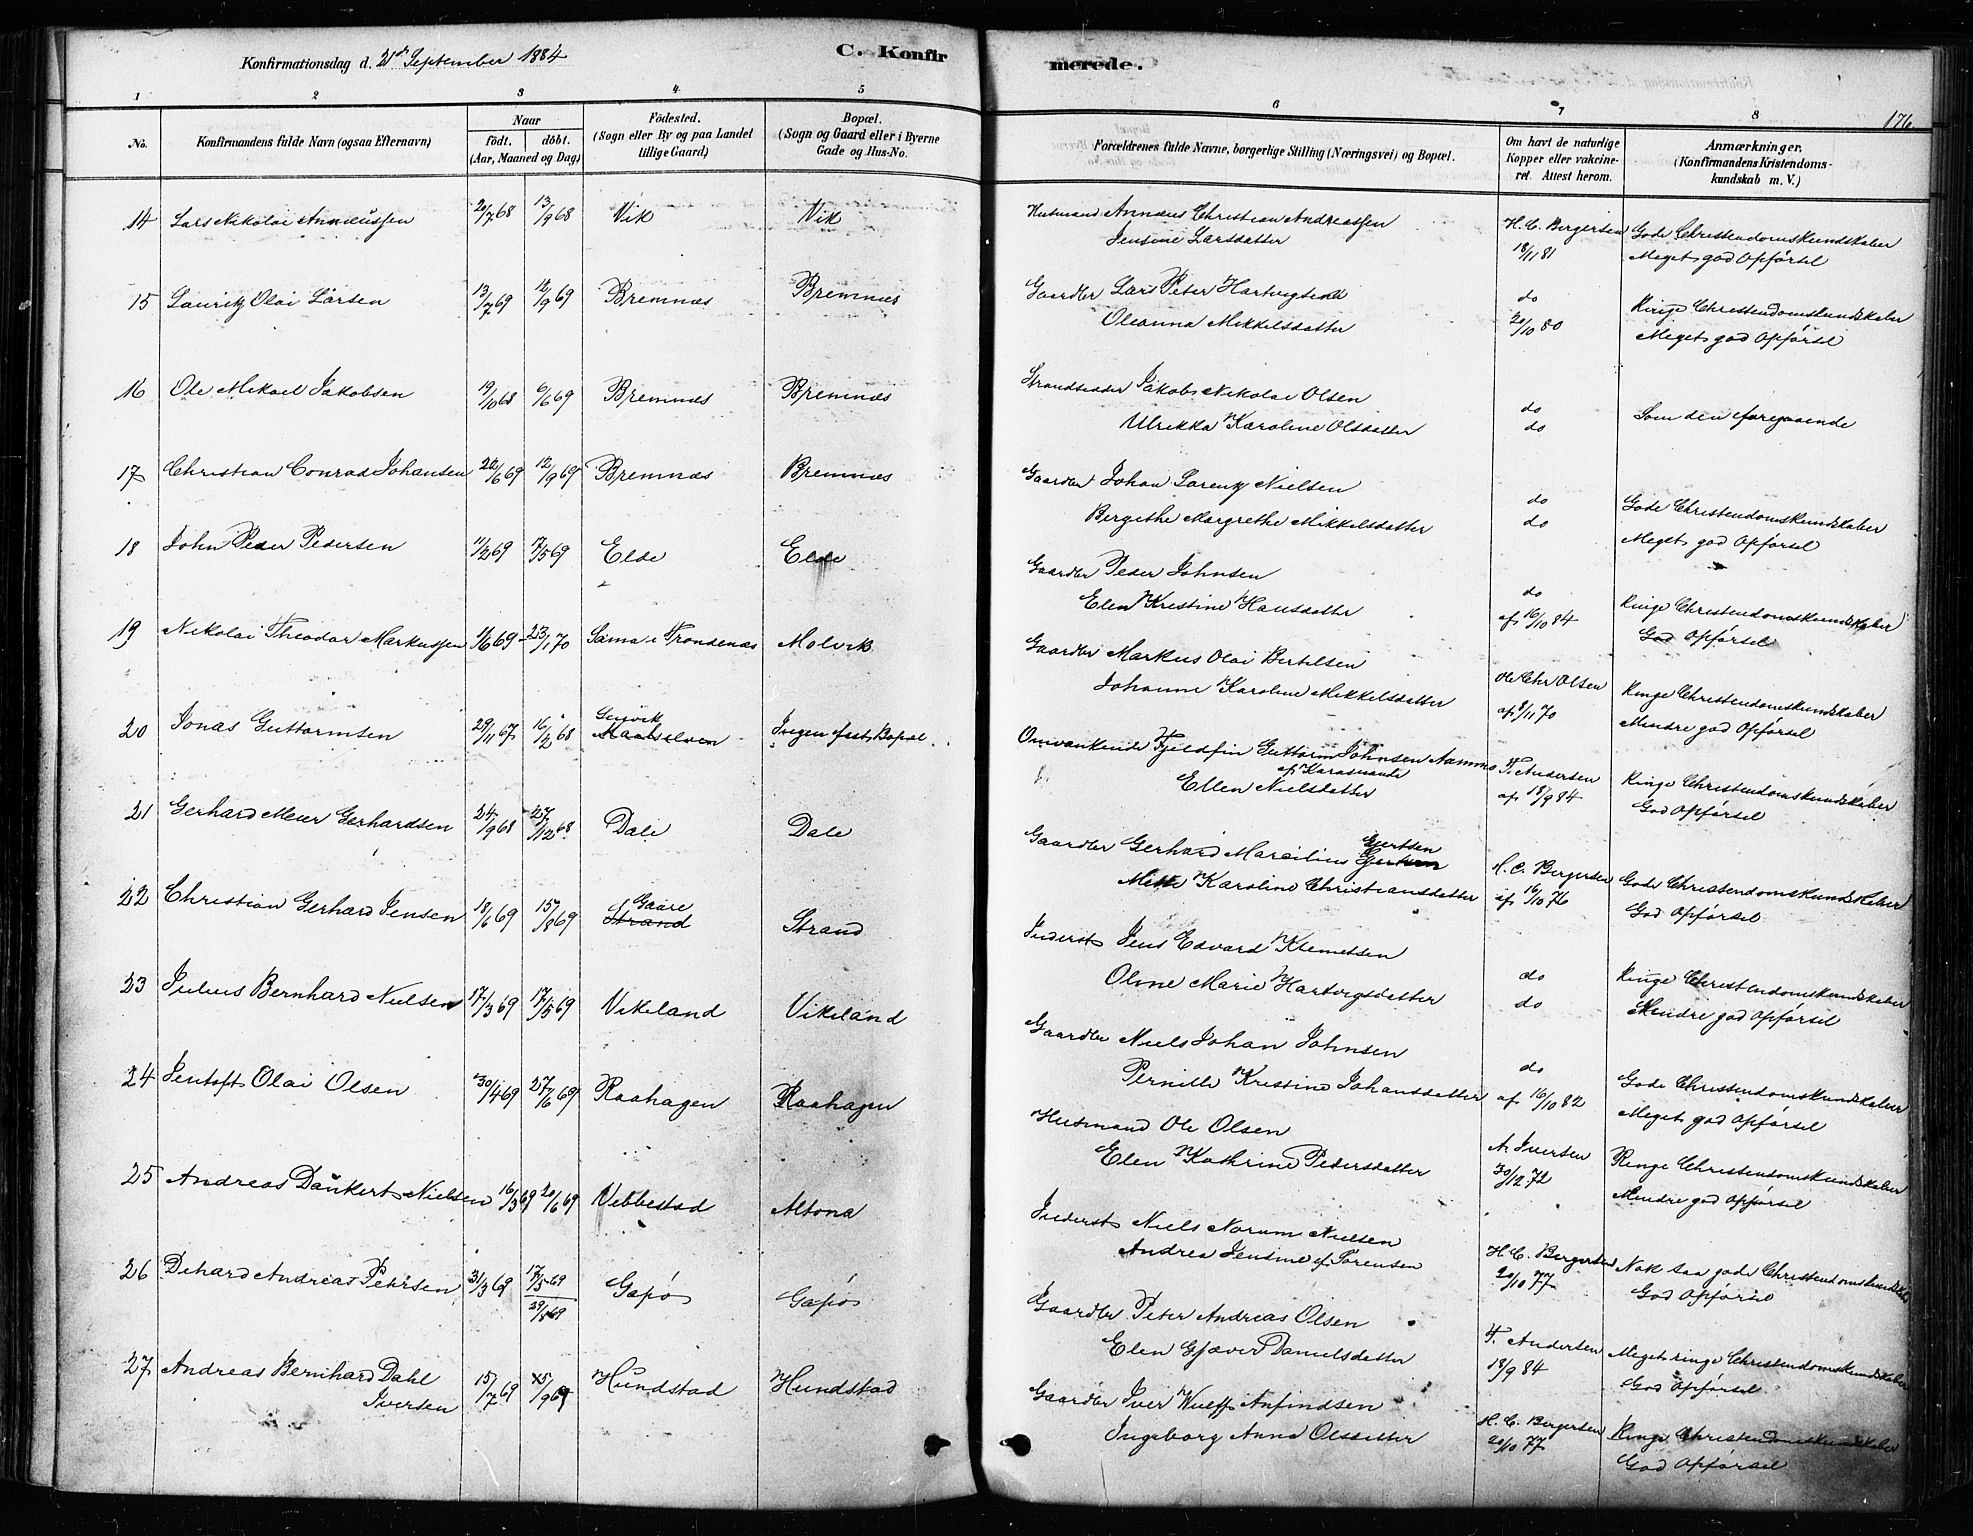 Konfirmationsdag d. 21de September 1884
C. Konfirmerede.
176.
1 2 3 4 5 6 7 8
No. Konfirmandens fulde Navn (ogsaa Efternavn) Naar födt. döbt. (Aar, Maaned og Dag) Födested. (Sogn eller By og paa Landet tillige Gaard) Bopæl. (Sogn og Gaard eller i Byerne Gade og Hus-No. Forældrenes fulde Navne, borgerlige Stilling (Næringsvei) og Bopæl. Om havt de naturlige Kopper eller vakcineret. Attest herom. Anmærkninger. (Konfirmandens Kristendomskundskab m. V.)
14 Lars Nikolai Annæussen 20/7 68 13/9 68 Vik Vik Husmand Annæus Christian Andreassen H. C. Bergersen Gode Christendomskundskaber
Jensine Larsdatter 18/11 81 Meget god Opførsel
15 Lauritz Olai Larsen 13/7 69 12/9 69 Bremnæs Bremnæs Gaardbr Lars Peter Hartvigsen do Ringe Christendomskundskaber
Oleanna Mikkelsdatter 20/10 80 Meget god Opførsel
16 Ole Mikael Jakobsen 19/10 68 6/6 69 Bremnæs Bremnæs Strandsidder Jakob Nikolai Olsen do Som den foregaaende
Ulrikka Karoline Olsdatter do
17 Christian Conrad Johansen 22/6 69 12/9 69 Bremnæs Bremnæs Gaardbr Johan Lorentz Nielsen do Gode Christendomskundskaber
Bergithe Margrethe Mikkelsdatter do Meget god Opførsel
18 John Peder Pedersen 11/2 69 17/5 69 Elde Elde Gaardbr Peder Johnsen do Ringe Christendomskundskaber
Elen Kristine Hansdatter af 16/10 84 God Opførsel
19 Nikolai Theodor Markussen 1/6 69 23/1 70 Sama i Trondenæs Molvik Gaardbr Markus Olai Bertelsen Ole Chr Olsen Ringe Christendomskundskaber
Johanne Karoline Mikkelsdatter af 8/11 70 Mindre god Opførsel
20 Jonas Guttormsen 29/11 67 16/2 68 Maalselven Ingen fast Bopæl Omvankende Fjeldfin Guttorm Johnsen F. Andersen Ringe Christendomskundskaber
Ellen Nielsdatter af 18/9 84 God Opførsel
21 Gerhard Meier Gerhardsen 24/9 68 27/12 68 Dale Dale Gaardbr Gerhard Marcilius Gjertsen H. C. Bergersen Gode Christendomskundskaber
Mette Karoline Christiansdatter af 16/10 76 God Opførsel
22 Christian Gerhard Jensen 18/6 69 15/8 69 Gaare Strand Strand Inderst Jens Edvard Klemetsen do Ringe Christendomskundskaber
Oline Marie Hartvigsdatter do Mindre god Opførsel
23 Julius Bernhard Nielsen 17/3 69 17/5 69 Vikeland Vikeland Gaardbr Niels Johan Johnsen do Gode Christendomskundskaber
Pernille Kristine Johansdatter af 16/10 82 Meget god Opførsel
24 Jentoft Olai Olsen 30/4 69 27/6 69 Raahagen Raahagen Husmand Ole Olsen A. Iversen Ringe Christendomskundskaber
Elen Kathrine Pedersdatter 30/12 72 Mindre god Opførsel
25 Andreas Dankert Nielsen 16/3 69 20/6 69 Vebbestad Altona Inderst Niels Norum Nielsen H. C. Bergersen Nok saa gode Christendomskundskaber
Andrea Jensine f. Sørensen 20/10 77 God Opførsel
26 Dehard Andreas Petersen 31/3 69 17/5 69 Gapø Gapø Gaardbr Peter Andreas Olsen F. Andersen Meget ringe Christendomskundskaber
29/8 69 Elen Gjæver Danielsdatter 18/9 84 God Opførsel
27 Andreas Bernhard Dahl 15/7 69 Hundstad Hundstad Gaardbr Iver Wulff Anfindsen H. C. Bergersen Ringe Christendomskundskaber
Iversen Ingeborg Anna Olsdatter 20/10 77 God Opførsel